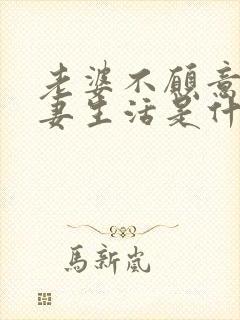 老婆不願意
妻生活是什
馬新嵐